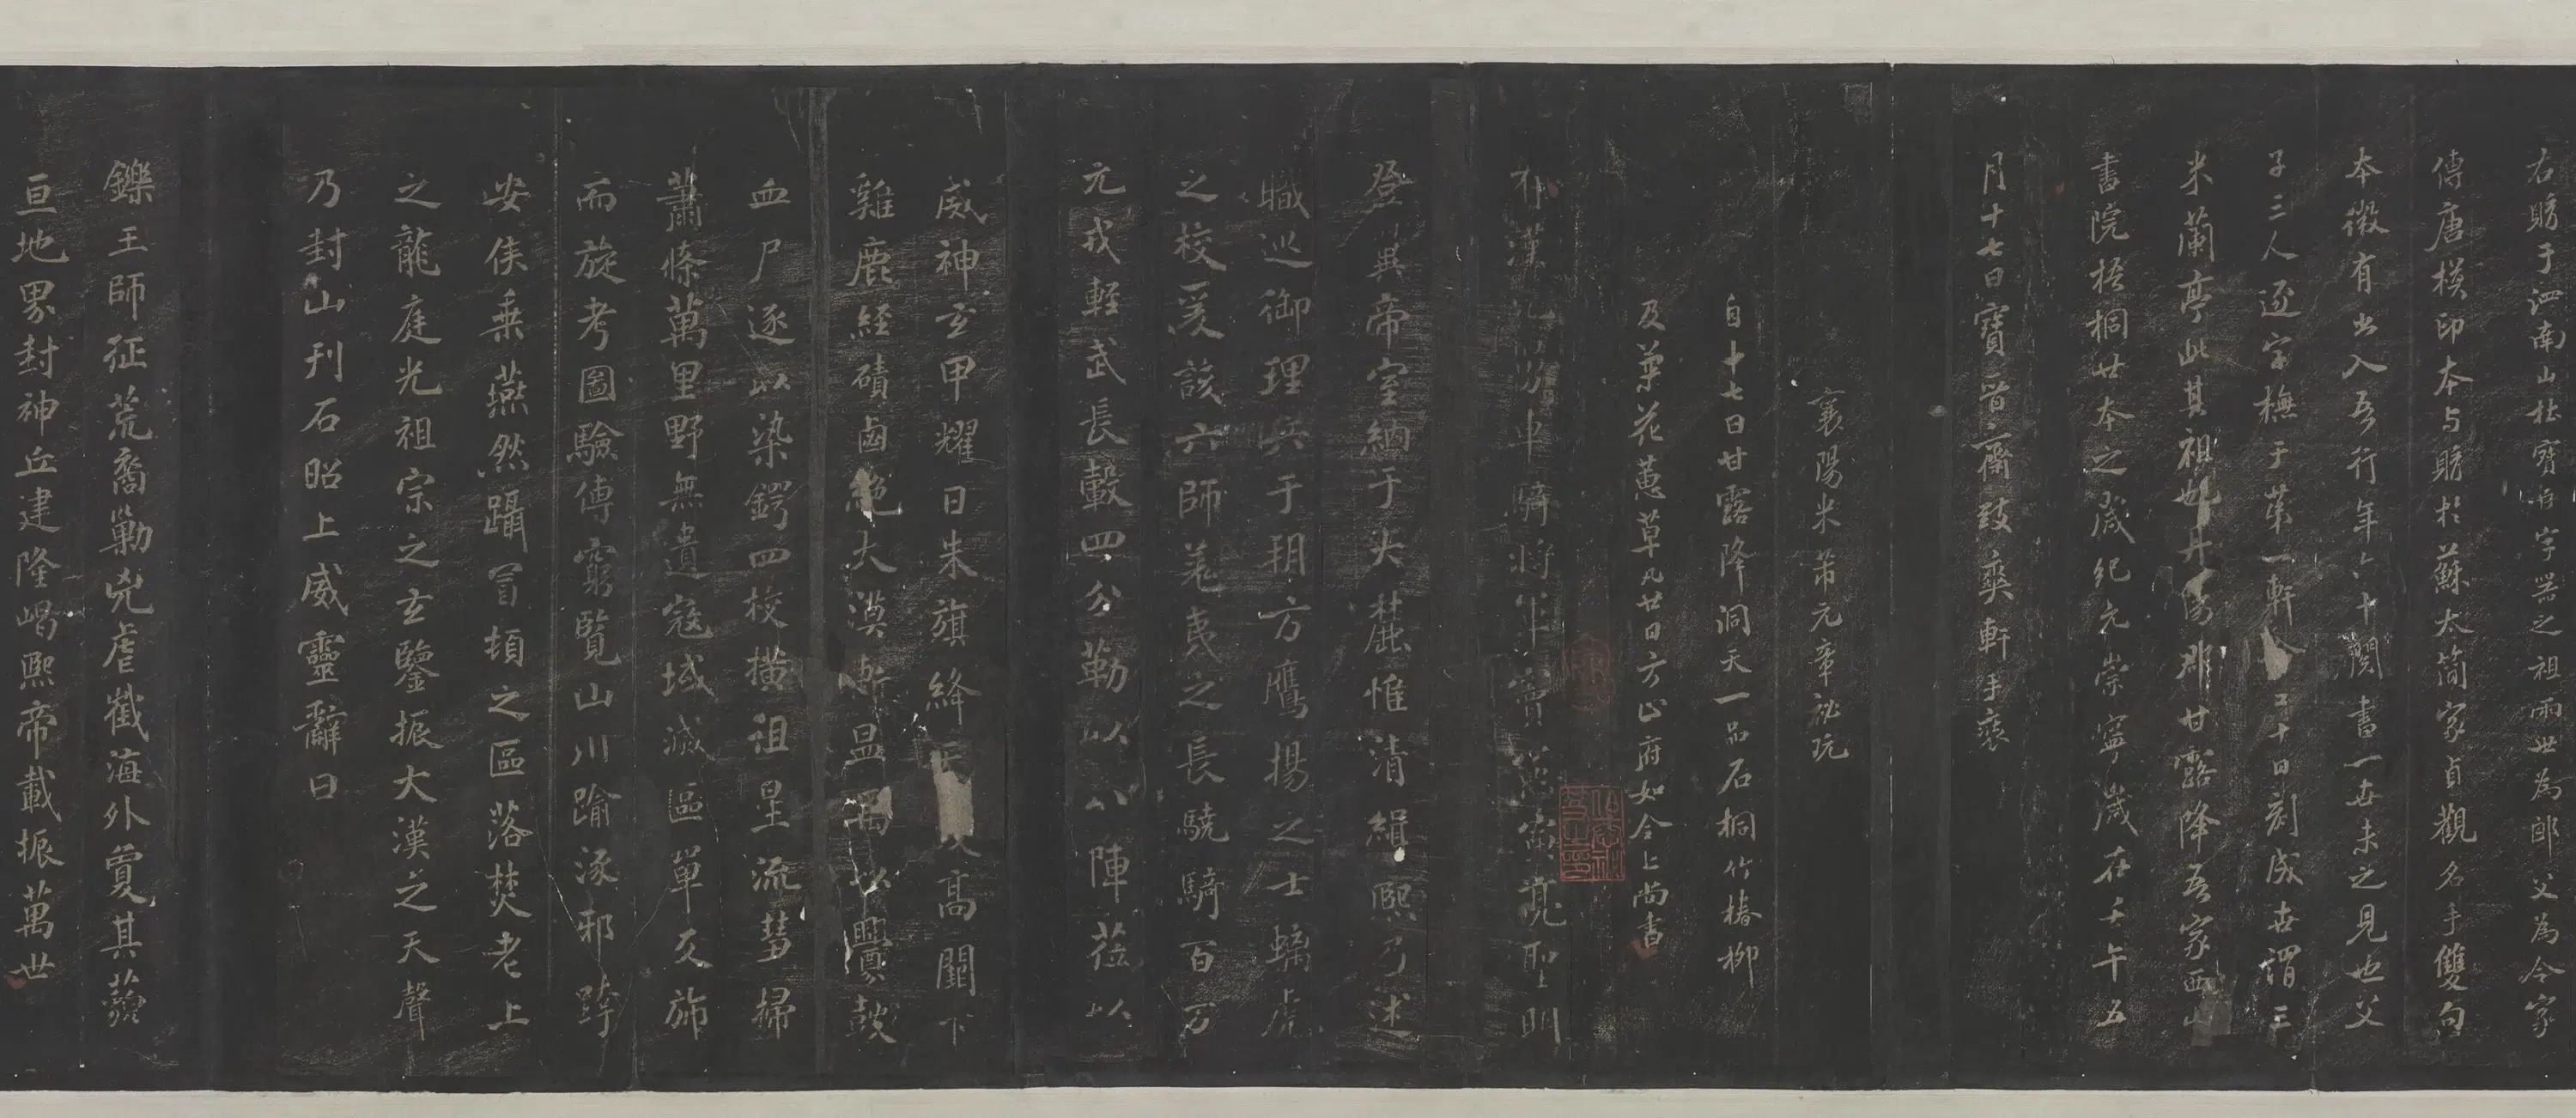 右賜于泗南山杜寶臣字器之祖兩世為郎父為令家
傳唐模印本与賜於蘇太簡家貞觀名手雙勾
本微有出入吾行年六十閱書一世未之見也父
子三人逐字橅于第一軒三十日剞成世謂三
米蘭亭此其祖也丹陽郡甘露降吾家西山
書院梧桐廿本之歲紀元崇寧歲在壬午五
月十七日寶晉齋致爽軒手裝
襄陽米芾元章祕玩
自十七日甘露降洞天一品石桐竹椿柳
及葉花蕙草凡廿日方止府如令上尚書
漢元 車騎將軍竇憲寅亮聖明
登翼帝室納于大麓惟清緝熙乃述
職巡御理兵于朔方鷹揚之士螭虎
之校爰該六師羌夷之長驍騎百万
元戎輕武長轂四分勒以八陣莅以
威神玄甲耀日朱旗絳 高闕下
雞鹿經磧鹵絕大漠斬温禺以釁鼓
血尸逐以染鍔四校橫徂星流彗掃
蕭條萬里野無遺寇域滅區單反旆
而旋考圖驗傳窮覽山川踰涿邪跨
安侯乗燕然躡冒頓之區落焚老上
之龍庭光祖宗之玄鑒振大漢之天聲
乃封山刊石昭上威靈辭曰
鑠王師征荒裔勦兇虐截海外夐其藐
亘地界封神丘建隆嵑熙帝載振萬世